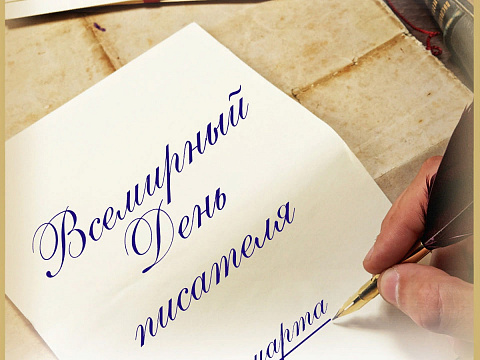 Всемирный
День
писателя
марта